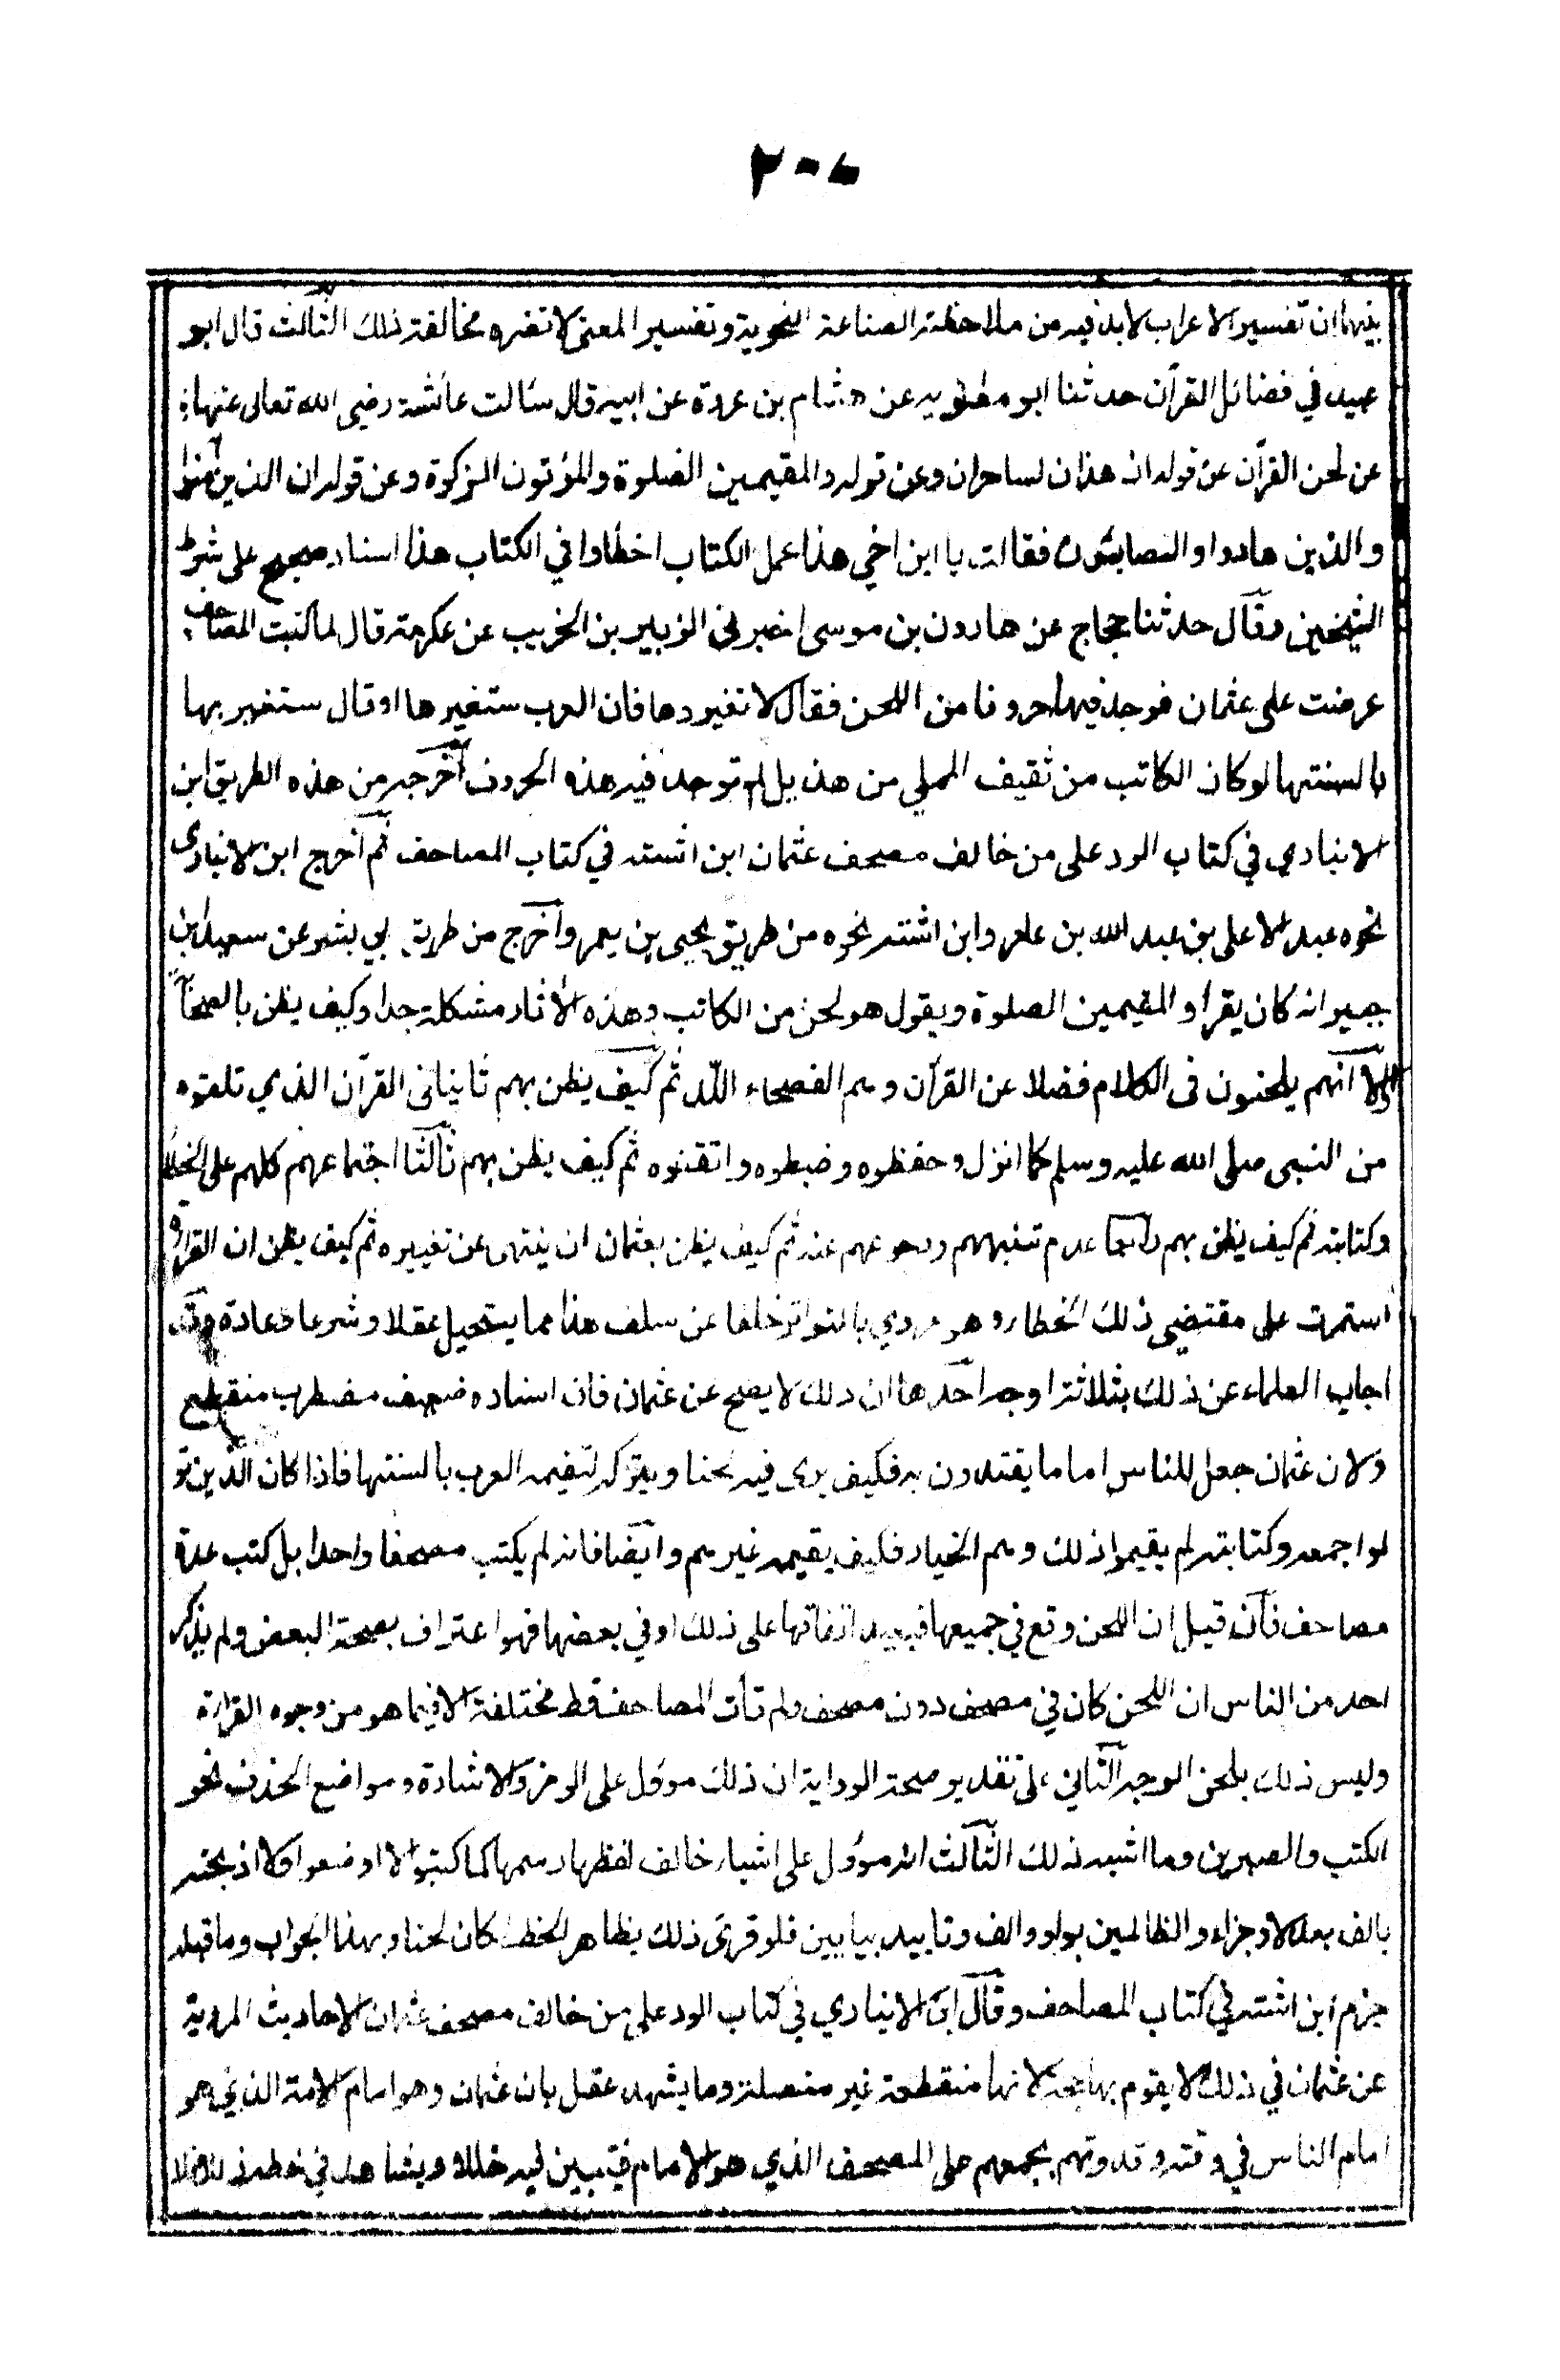 بينهما ان تفسير الاعراب لابد فيه من ملاحظة الصناعة النحوية وتفسير المعنى لا تضره مخالفة ذلك الثالث قال ابو
عبيد في فضائل القرآن حدثنا ابو معٰوية عن هشام بن عروة عن ابيه قال سالت عائشة رضي الله تعالى عنها
عن لحن القرآن عن قوله ان هذان لساحران وعن قوله والمقيمين الصلوة والمؤتون الزكوة وعن قوله ان الذين آمنوا
والذين هادوا والصابئون فقالت يا ابن اخي هذا عمل الكتاب اخطاوا في الكتاب هذا اسناد صحيح على شرط
الشيخين وقال حدثنا حجاج عن هارون بن موسى اخبرني الزبير بن الخريب عن عكرمة قال لما كتبت المصاحف
عرضت على عثمان فوجد فيها حروفا من اللحن فقال لا تغيروها فان العرب ستغيرها او قال ستغير بها
بالسنتها لو كان الكاتب من ثقيف المملي من هذيل لم توجد فيه هذه الحروف آخرجه من هذه الطريق ابن
الانباري في كتاب الرد على من خالف مصحف عثمان ابن اشته في كتاب المصاحف ثم آخرج ابن الانباري
نحوه عبد الاعلى بن عبد الله بن عامر وابن اشته نحوه من طريق يحيى بن يعمر وآخرج من طريق ابي بشر عن سعيد بن
جبير انه كان يقرأ والمقيمين الصلوة ويقول هو لحن من الكاتب وهذه الأثار مشكلة جدا وكيف يظن بالصحآ
اولا انهم يلحنون فى الكلام فضلا عن القرآن وهم الفصحاء اللد ثم كيف يظن بهم ثانيا فى القرآن الذي تلقوه
من النبي صلى الله عليه وسلم كما انزل وحفظوه وضبطوه واتقنوه ثم كيف يظن بهم ثالثا اجتماعهم كلهم على الخطا
وكتابته ثم كيف يظن بهم رابعا عدم تنبههم ورجوعهم عنه ثم كيف يظن بعثمان ان ينتهى عن تغييره ثم كيف يظن ان القراة
استمرت على مقتضى ذلك الخطا وهو مروي بالتواتر خلفا عن سلف هذا مما يستحيل عقلا وشرعا وعادة وقد
اجاب العلماء عن ذلك بثلاثة اوجه احدها ان ذلك لا يصح عن عثمان فان اسناده ضعيف مضطرب منقطع
ولان عثمان جعل للناس اماما يقتدون به فكيف يرى فيه لحنا ويتركه لتقيمه العرب بالسنتها فاذا كان الذين تو
لوا جمعه وكتابته لم يقيموا ذلك وهم الخيار فكيف يقيمه غيرهم وايضا فانه لم يكتب مصحفا واحدا بل كتب عدة
مصاحف فان قيل ان اللحن وقع في جميعها فبعيد اتفاقها على ذلك او في بعضها فهو اعتراف بصحة البعض ولم يذكر
احد من الناس ان اللحن كان في مصحف دون مصحف ولم تأت المصاحف قط مختلفة الا فيما هو من وجوه القراءة
وليس ذلك بلحن الوجه الثاني على تقدير صحة الرواية ان ذلك مؤول على الرمز والاشارة ومواضع الحذف نحو
الكتب والصبرين وما اشبه ذلك الثالث انه مؤول على اشياء خالف لفظها رسمها كما كتبوا لا اوضعوا ولا اذبحنه
بالف بعد لا وجزاء والظالمين بواو والف وباييد بيايين فلو قرئ ذلك بظاهر الخط لكان لحنا وبهذا الجواب وما قبله
جزم ابن اشته في كتاب المصاحف وقال ابن الانباري في كتاب الرد على من خالف مصحف عثمان الاحاديث المروية
عن عثمان في ذلك لا يقوم بها حجة لانها منقطعة غير متصلة وما يشهد عقل بان عثمان وهو امام الامة الذي هو
امام الناس في وقته وقدوتهم بجمعهم على المصحف الذي هو الامام فيتبين فيه خللا ويشاهد في خطه زللا فلا